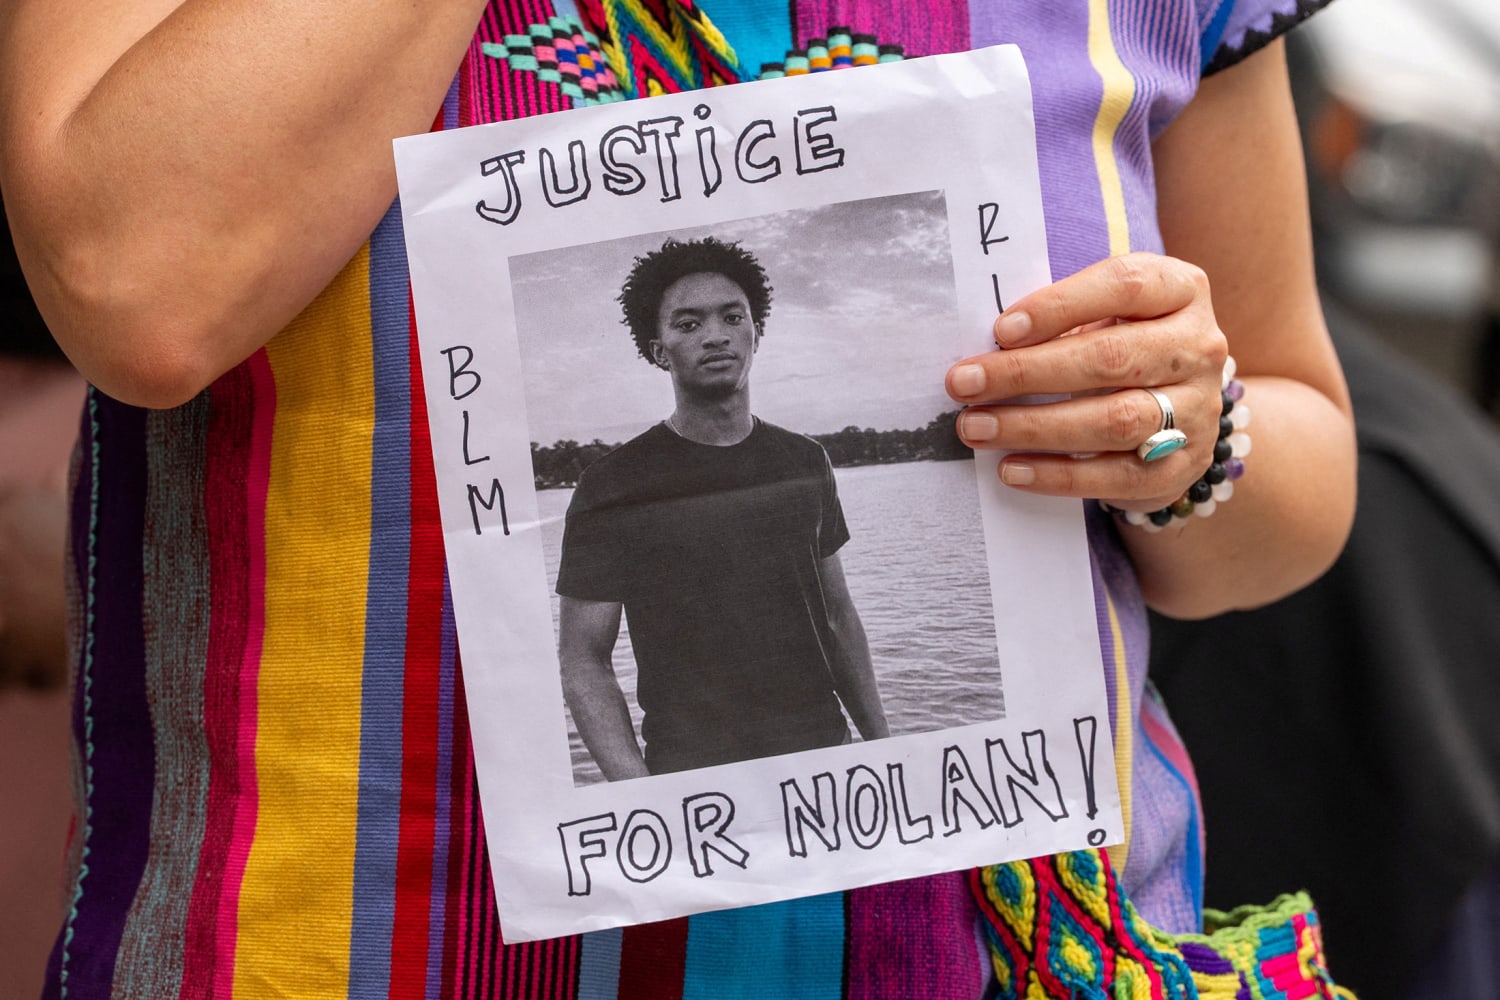 JUSTiCE
BLM
R
I
FOR NOLAN!